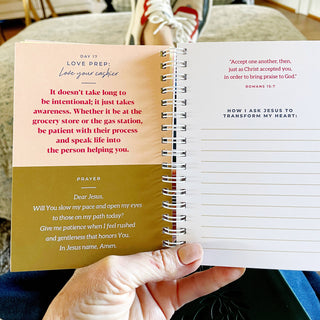 DAY 17
LOVE PREP:
Love your cashier
It doesn't take long to
be intentional; it just takes
awareness. Whether it be at the
grocery store or the gas station,
be patient with their process
and speak life into
the person helping you.
PRAYER
Dear Jesus,
Will You slow my pace and open my eyes
to those on my path today?
Give me patience when I feel rushed
and gentleness that honors You.
In Jesus name, Amen.
"Accept one another, then,
just as Christ accepted you,
in order to bring praise to God."
ROMANS 15:7
HOW I ASK JESUS TO
TRANSFORM MY HEART: